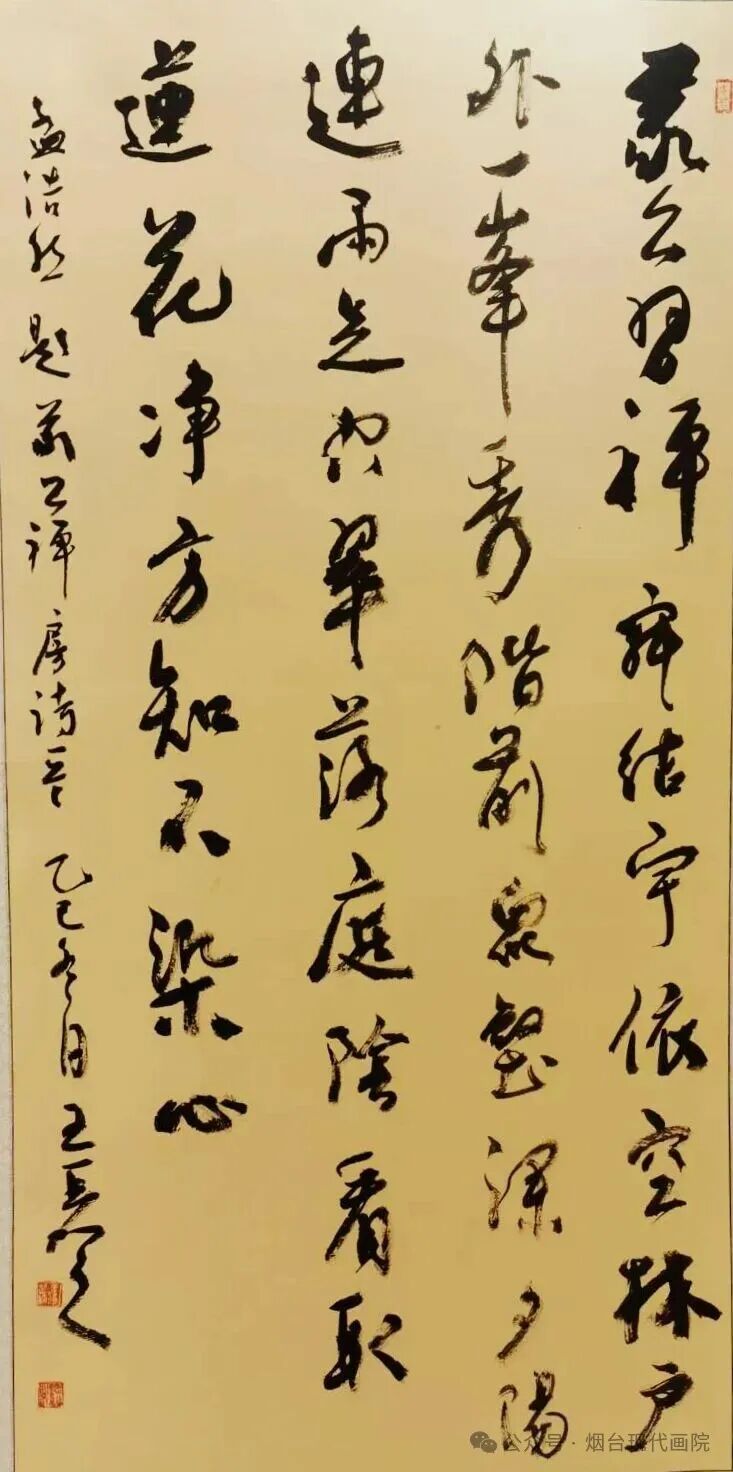 義公習禪寂結宇依空林户
外一峯秀階前眾壑深夕陽
連雨足空翠落庭陰看取
蓮花净方知不染心
孟浩然題義公禪房詩一首 乙巳冬日 王
公众号 · 烟台现代画院